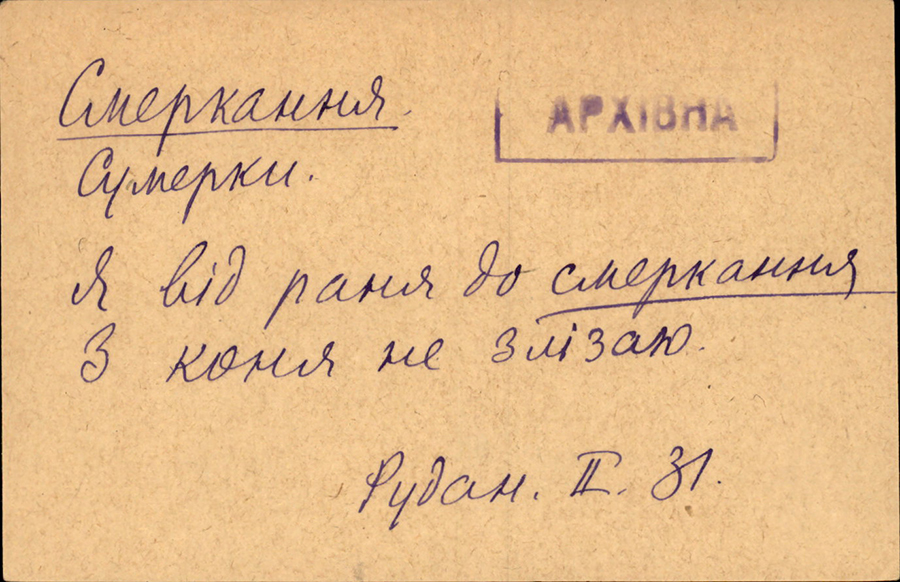 Смеркання.
АРХІВНА
Сумерки.
Я від раня до смеркання
З коня не злізаю.
Рудан. II. 31.